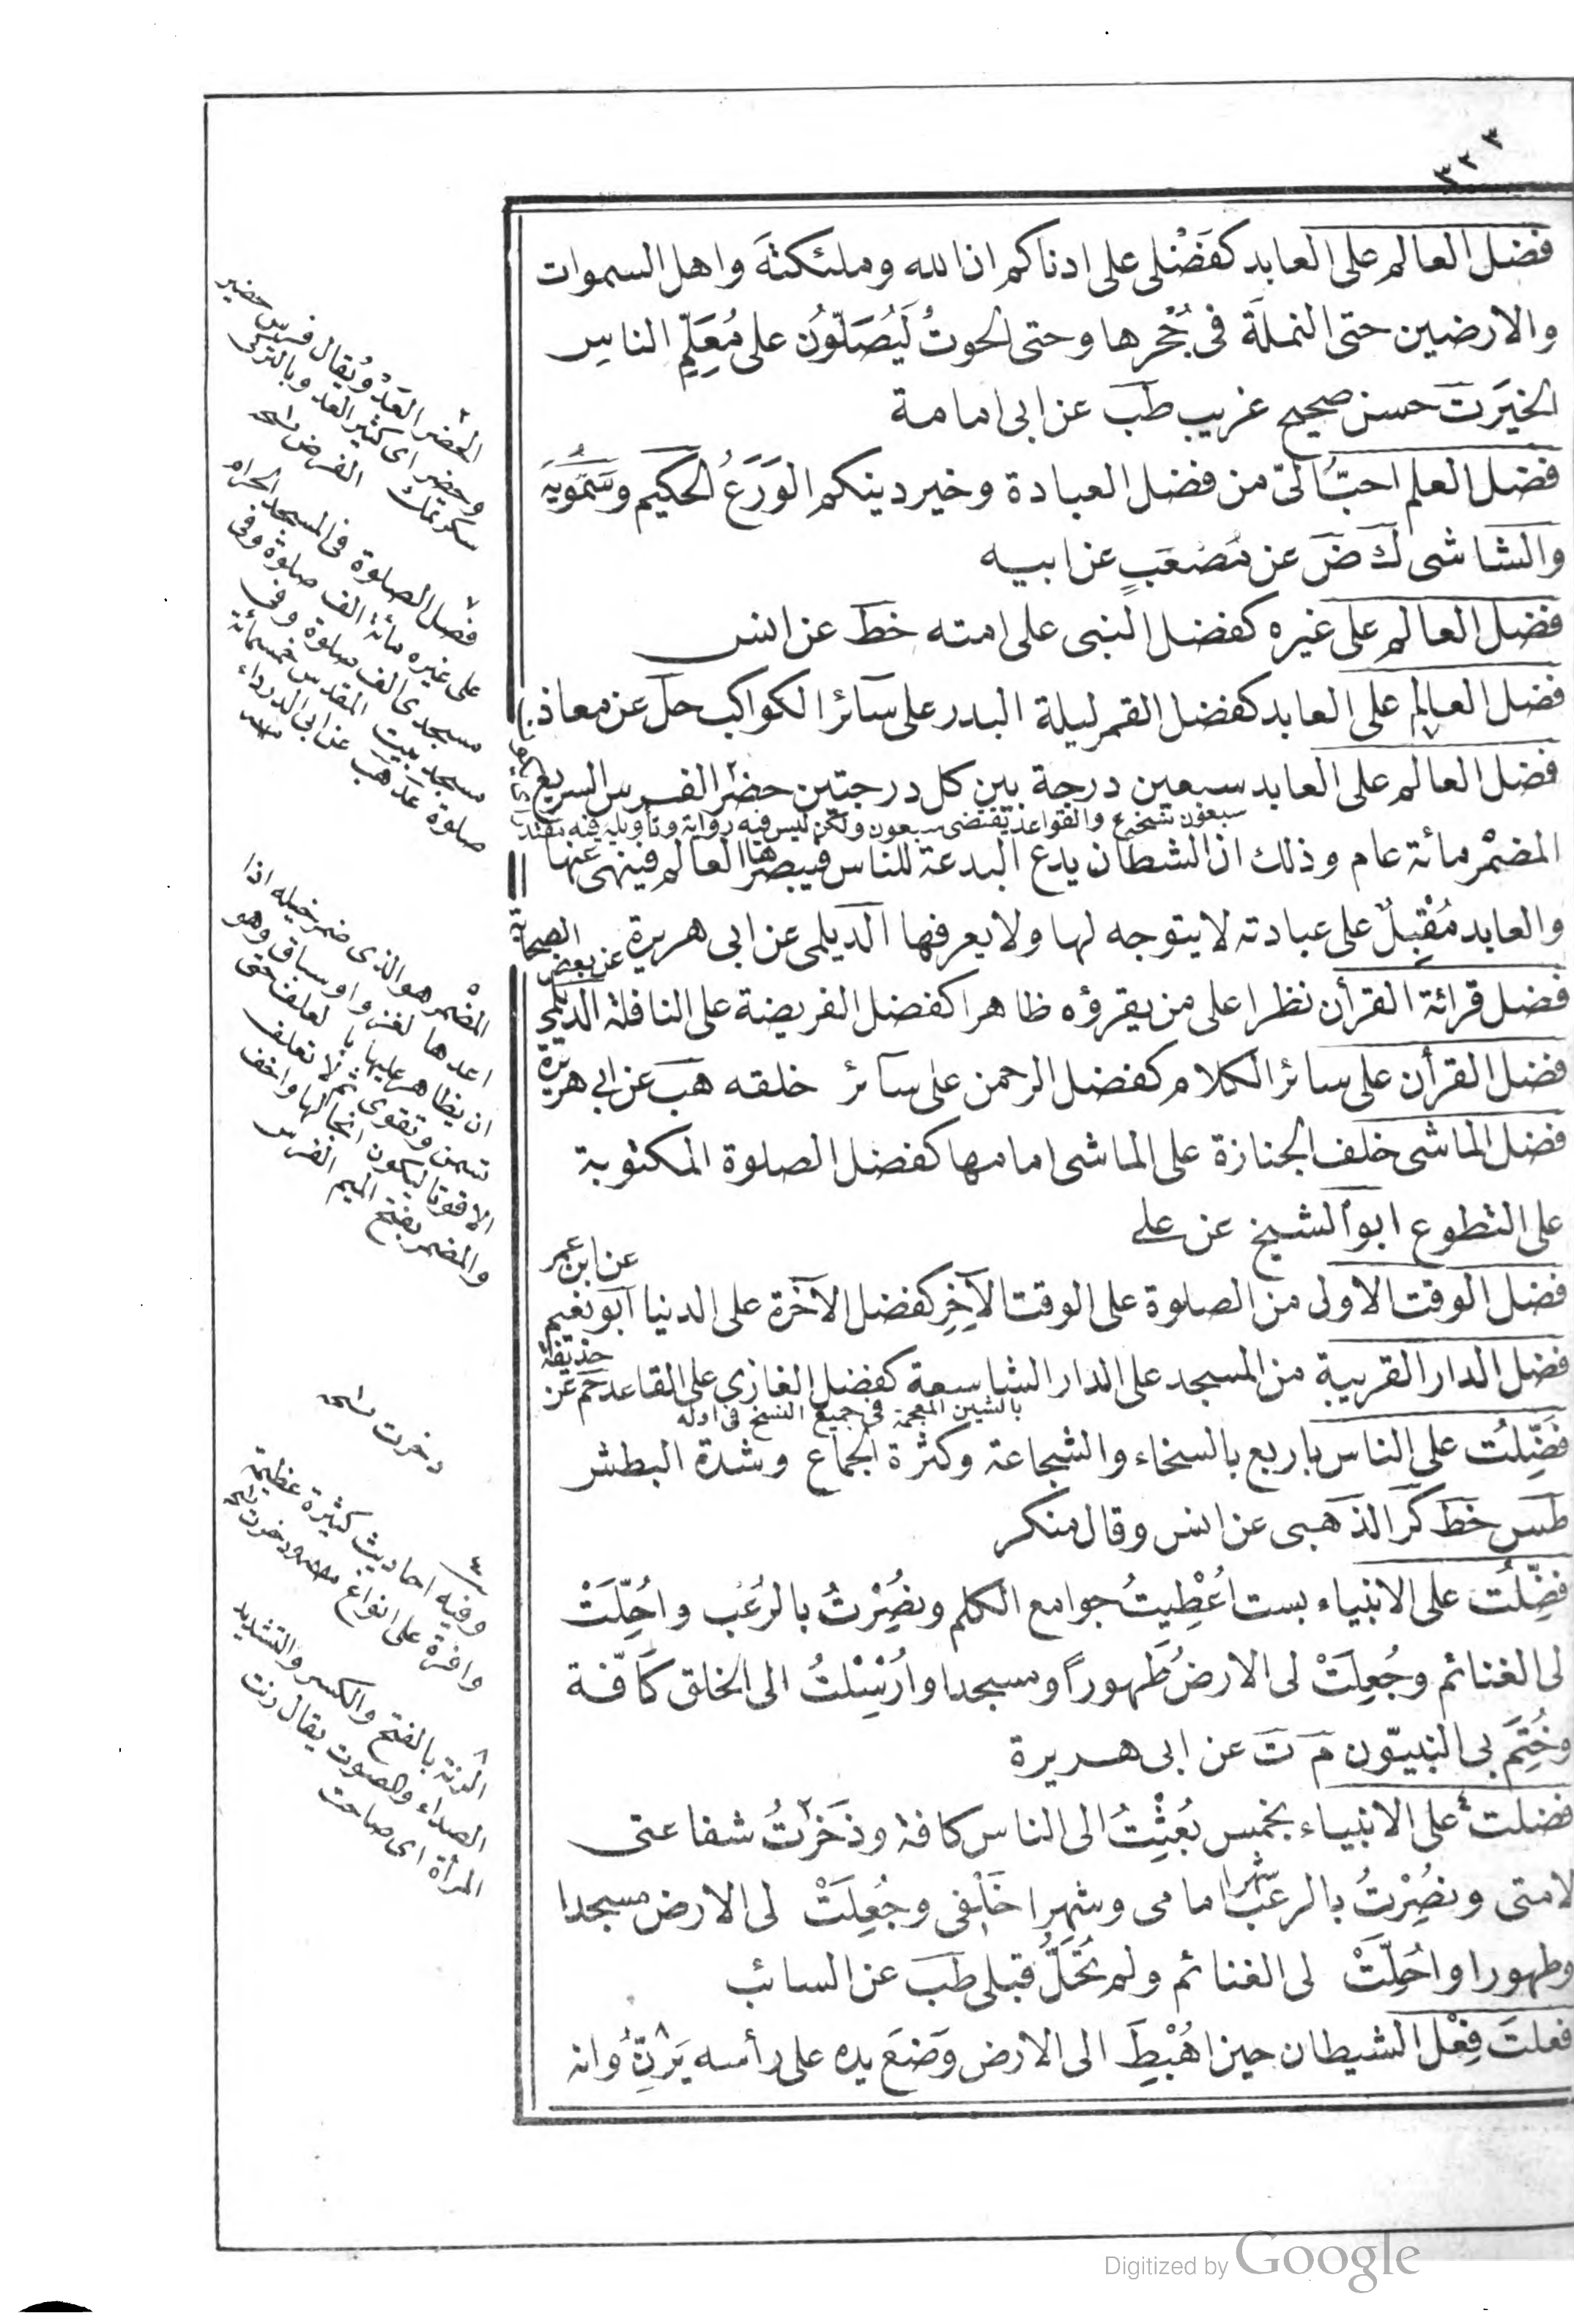 ٣٣٣
فضل العالم على العابد كفَضْلى على ادناكم ان الله وملئكتهَ واهل السموات
والارضين حتى النملةَ فى جُحْرها وحتى الحوتُ لَيُصَلّوُن على مُعَلِّمِ الناس
الخيرَ ت حسن صحيح غريب طب عن ابى امامة
فضل العلم احبُّ الىّ من فضل العبادة وخير دينكم الوَرَعُ الحكيم وسَمَّويَه
والشاشى ك ض عن مصعَبٍ عن ابيه
فضل العالم على غيره كفضل النبى على امته خط عن انس
فضل العالم على العابد كفضل القمر ليلة البدر على سآئر الكواكب حل عن معاذ
فضل العالم على العابد سبعين درجة بين كل درجتين حضر الفرس السريع
سبعون نسخه والقواعد تقتضى سبعون ولكن ليس فيه رواية وتأويله فيه
المضمْر مائة عام وذلك ان الشطان يدع البدعة للناس فيبصرها العالم فينهى عنها
والعابد مُقْبِلٌ على عبادته لا يتوجه لها ولا يعرفها الديلمى عن ابى هريرة
عن بعض الصحابة
فضل قرائة القرأن نظرا على من يقرؤه ظاهرا كفضل الفريضة على النافلة الديلمى
فضل القرأن على سائر الكلام كفضل الرحمن على سآئر خلقه هب عن ابى هريرة
فضل الماشى خلف الجنازة على الماشى امامها كفضل الصلوة المكتوبة
على التطوع ابو الشيخ عن على
عن ابن عمر
فضل الوقت الاولى من الصلوة على الوقت الآخِرِ كفضل الآخرة على الدنيا ابو نعيم
فضل الدار القريبة من المسجد على الدار الشاسعة كفضل الغازى على القاعد حم عن حذيفة
بالشين المعجمة فى جميع النسخ فى اوله
فَضِّلتُ على الناس باربع بالسخاء والشجاعة وكثرة الجماع وشدة البطش
طس خط كر الذهبى عن انس وقال منكر
فضِّلتُ على الانبياء بست اعُطِيتُ جوامع الكلم ونصُِرْتُ بالرُعْب واحُِلّتْ
لى الغنائم وجُعِلَتْ لى الارضُ طَهوراً ومسجدا واُرْسِلْتُ الى الخلق كآفّة
وخُتِمَ بى النبيّون م ت عن ابى هريرة
فضلت ٤ على الانبياء بخمس بُعثِتُ الى الناس كافة وذَخَرْتُ شفاعتى
لامتى ونصُِرْتُ بالرعب شهرا امامى وشهرا خَلْفى وجُعِلَتْ لى الارض مسجدا
وطهورا واحُلِّتْ لى الغنائم ولم تُحَلَّ قبلى طب عن السائب
فعلتَ فِعْلَ الشيطان حين اهُبْطَِ الى الارض وَضَعَ يده على رأسه يَرِنُّ ٨ وانه
٢
الحضر العَدْو ويُقال فرس حضير
وحضر اى كثير العدو وبالتركى
سكرتمك الفرض
٧
فضل الصلوة فى المسجد الحرام
على غيره مائة الف صلوة وفى
مسجدى الف صلوة وفى
مسجد بيت المقدس خمسمائة
صلوة عد هب عن ابى الدرداء
٥
المضمر هو الذى ضمر خيله اذا
اعدها لغزو او سباق وهو
ان يظاهر عليها بالعلف حتى
تسمن وتقوى ثم لا تعلف
الا قوتا ليكون انجا لها واخف
والمضمر بفتح الميم الفرس
دخرت نسخه
٤
وفيه احاديث كثيرة عظيمة
وافرة على انواع
٨
الرنة بالفتح والكسر والتشديد
الصداء والصوت يقال رنت
المرأة اى صاحت
Digitized by Google